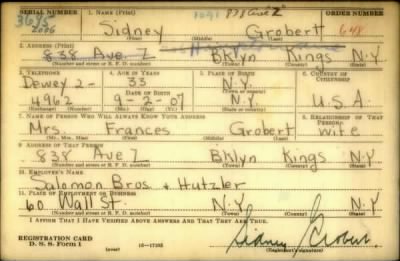 SERIAL NUMBER 1. NAME (Print) ORDER NUMBER
3695
2006
Sidney Grobert
648
(First) (Middle) (Last)
2. ADDRESS (Print)
838 Ave. Z Bklyn Kings N.Y
(Number and street or R. F. D. number) (Town) (County) (State)
3. TELEPHONE 4. AGE IN YEARS 5. PLACE OF BIRTH 6. COUNTRY OF CITIZENSHIP
Dewey 2- 33 N.Y.
DATE OF BIRTH (Town or county)
4962 9-2-07 N.Y U.S.A.
(Exchange) (Number) (Mo.) (Day) (Yr.) (State or country)
7. NAME OF PERSON WHO WILL ALWAYS KNOW YOUR ADDRESS 8. RELATIONSHIP OF THAT PERSON
Mrs. Frances Grobert wife
(Mr., Mrs., Miss) (First) (Middle) (Last)
9. ADDRESS OF THAT PERSON
838 Ave Z Bklyn Kings N.Y
(Number and street or R. F. D. number) (Town) (County) (State)
10. EMPLOYER'S NAME
Salomon Bros. + Hutzler
11. PLACE OF EMPLOYMENT OR BUSINESS
60 Wall St. N.Y. N.Y. N.Y
(Number and street or R. F. D. number) (Town) (County) (State)
I AFFIRM THAT I HAVE VERIFIED ABOVE ANSWERS AND THAT THEY ARE TRUE.
REGISTRATION CARD
D. S. S. Form 1 16-17105
Sidney Grobert
(Registrant's signature)